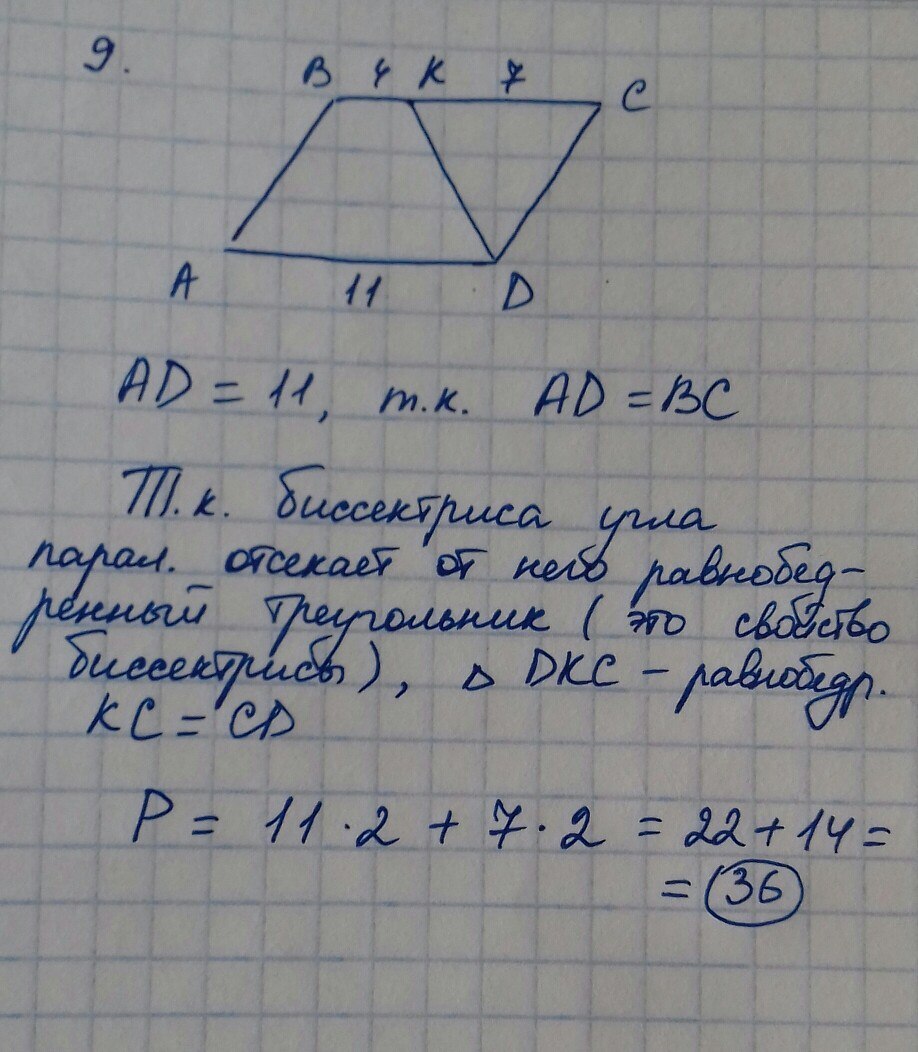 9.
B 4 K 7 C
A 11 D
AD = 11, т.к. AD = BC
Т.к. биссектриса угла
парал. отсекает от него равнобед-
ренный треугольник (это свойство
биссектрисы), △ DKC - равнобедр.
KC = CD
P = 11 · 2 + 7 · 2 = 22 + 14 =
= 36